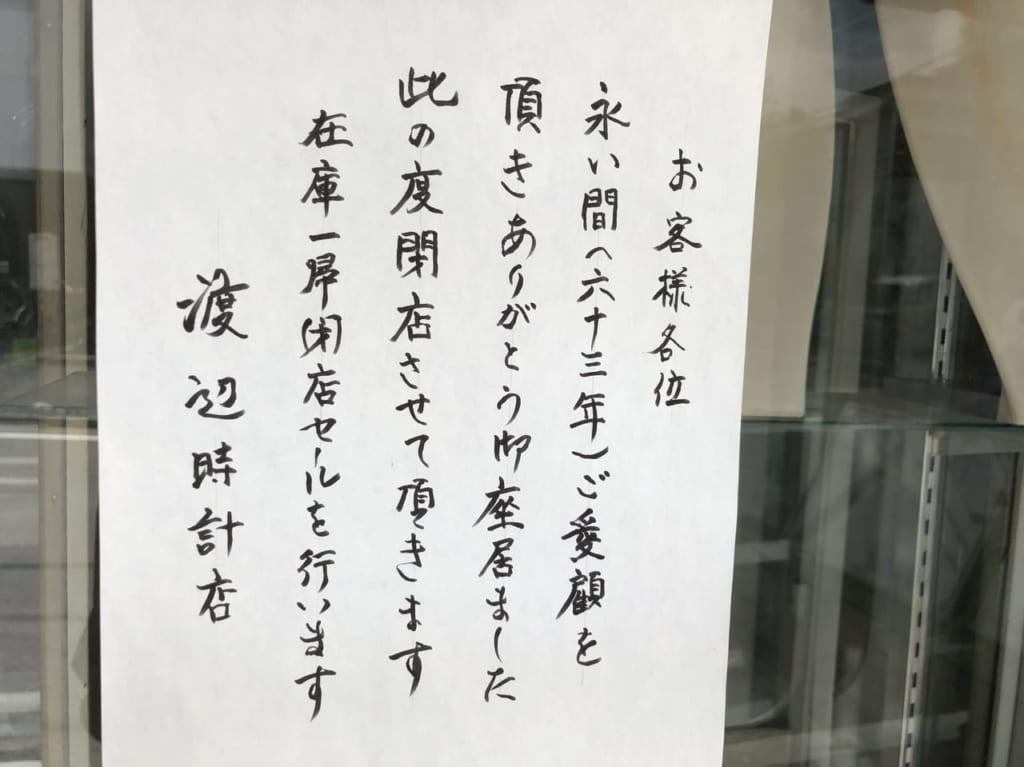 お客様各位
永い間(六十三年)ご愛顧を
頂きありがとう御座居ました
此の度閉店させて頂きます
在庫一掃閉店セールを行います
渡辺時計店